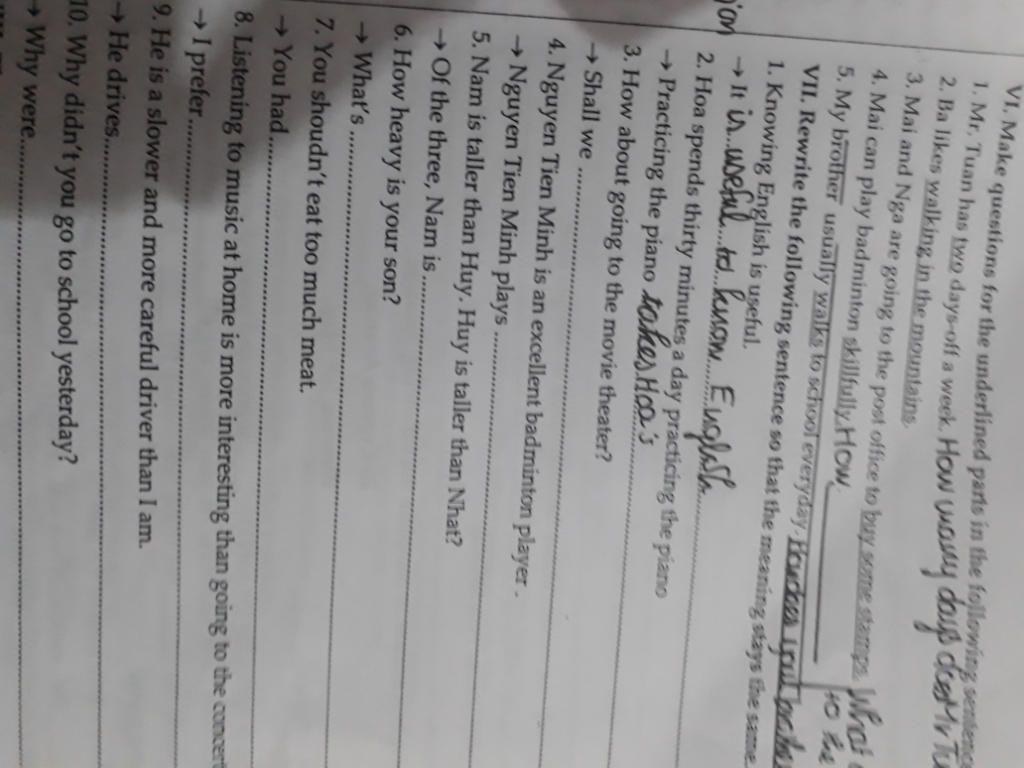 VI. Make questions for the underlined parts in the following sentence
1. Mr. Tuan has two days-off a week. How many days does Mr Tu
2. Ba likes walking in the mountains.
3. Mai and Nga are going to the post office to buy some stamps. What
4. Mai can play badminton skillfully. How to the
5. My brother usually walks to school everyday. How does your brother
VII. Rewrite the following sentence so that the meaning stays the same.
1. Knowing English is useful.
→ It is useful to know English.
2. Hoa spends thirty minutes a day practicing the piano
→ Practicing the piano takes Hoa's
3. How about going to the movie theater?
→ Shall we ..............................
4. Nguyen Tien Minh is an excellent badminton player .
→ Nguyen Tien Minh plays ..............................
5. Nam is taller than Huy. Huy is taller than Nhat?
→ Of the three, Nam is ..............................
6. How heavy is your son?
→ What's ..............................
7. You shoudn't eat too much meat.
→ You had..............................
8. Listening to music at home is more interesting than going to the concert
→ I prefer..............................
9. He is a slower and more careful driver than I am.
→ He drives..............................
10. Why didn't you go to school yesterday?
→ Why were..............................